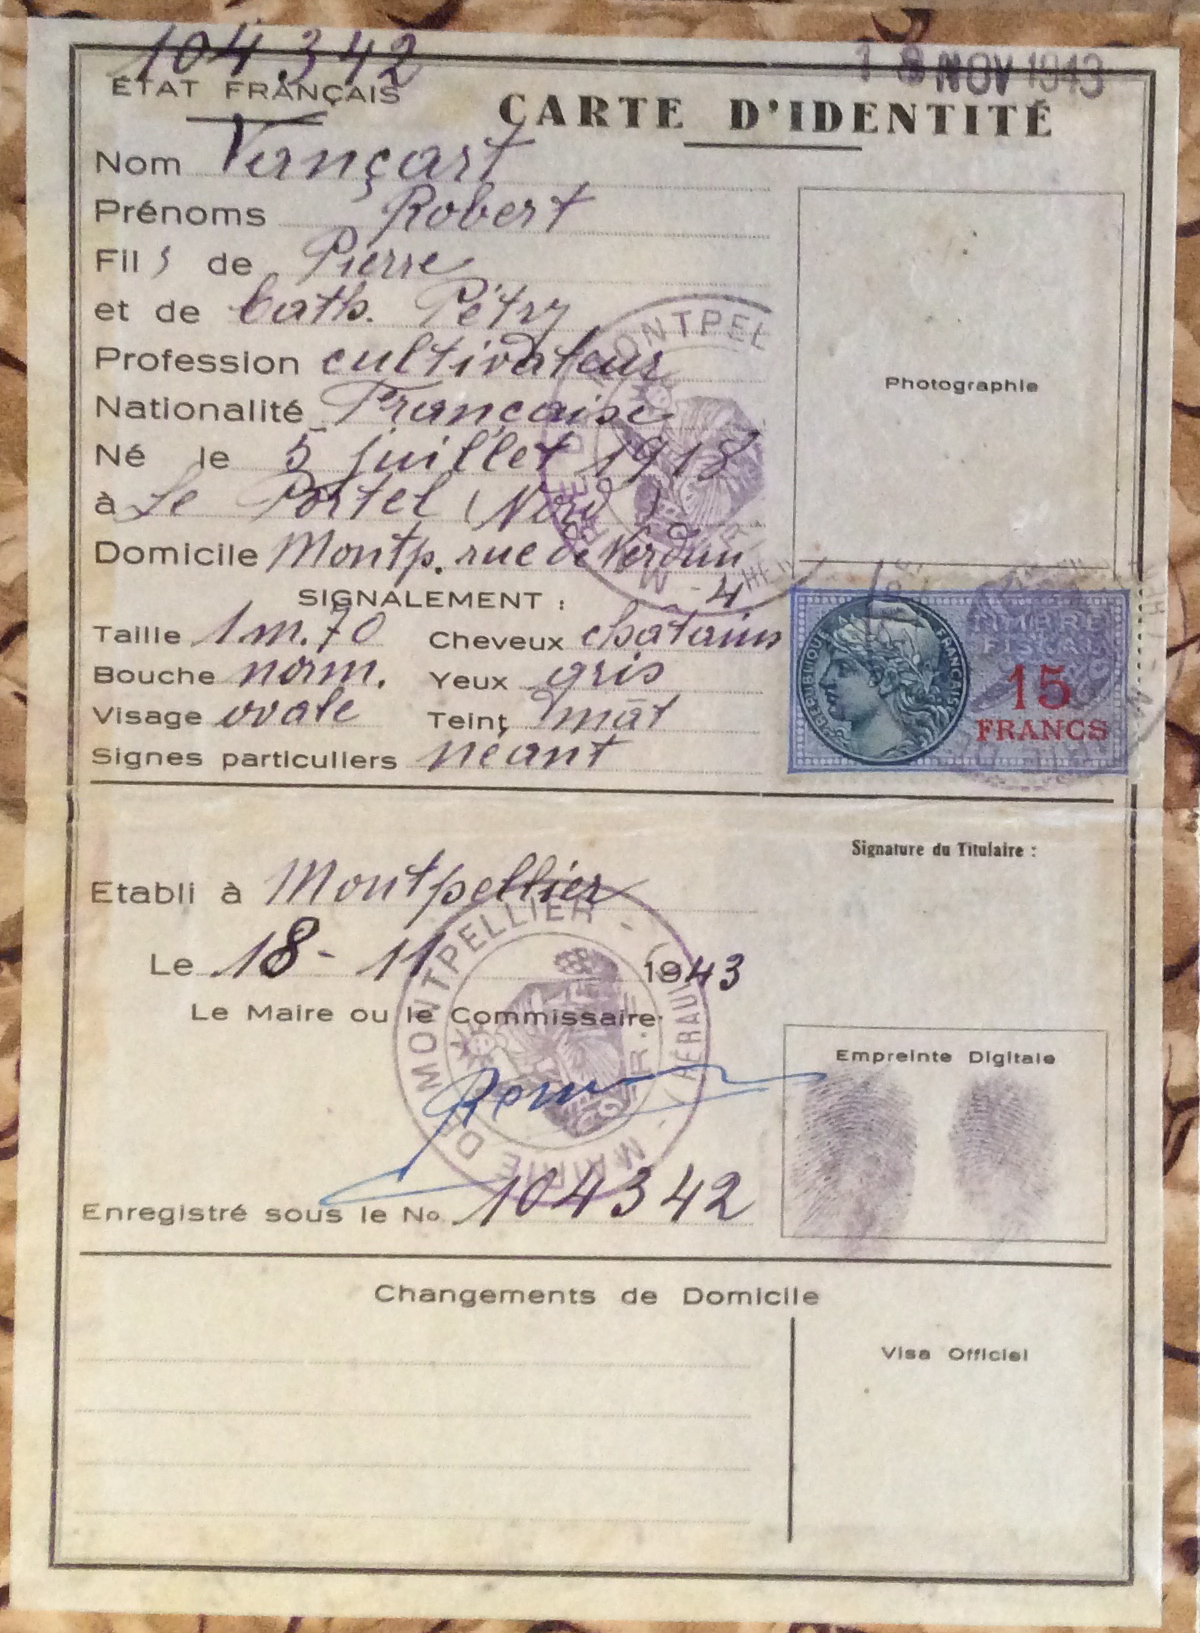 104342
18 NOV 1943
ÉTAT FRANÇAIS
CARTE D'IDENTITÉ
Nom Vançart
Prénoms Robert
Fils de Pierre
et de Cath. Pétry
Profession cultivateur
Nationalité Française
Né le 5 juillet 1918
à Le Portel (Nord)
Domicile Montp. rue de Verdun
- 4
Photographie
SIGNALEMENT :
Taille 1m.70 Cheveux chatains
Bouche norm. Yeux gris
Visage ovale Teint mat
Signes particuliers néant
RÉPUBLIQUE FRANÇAISE
TIMBRE
FISCAL
15
FRANCS
Signature du Titulaire :
Etabli à Montpellier
Le 18 - 11 1943
Le Maire ou le Commissaire
MAIRIE DE MONTPELLIER - HÉRAULT -
Empreinte Digitale
Enregistré sous le No 104342
Changements de Domicile
Visa Officiel